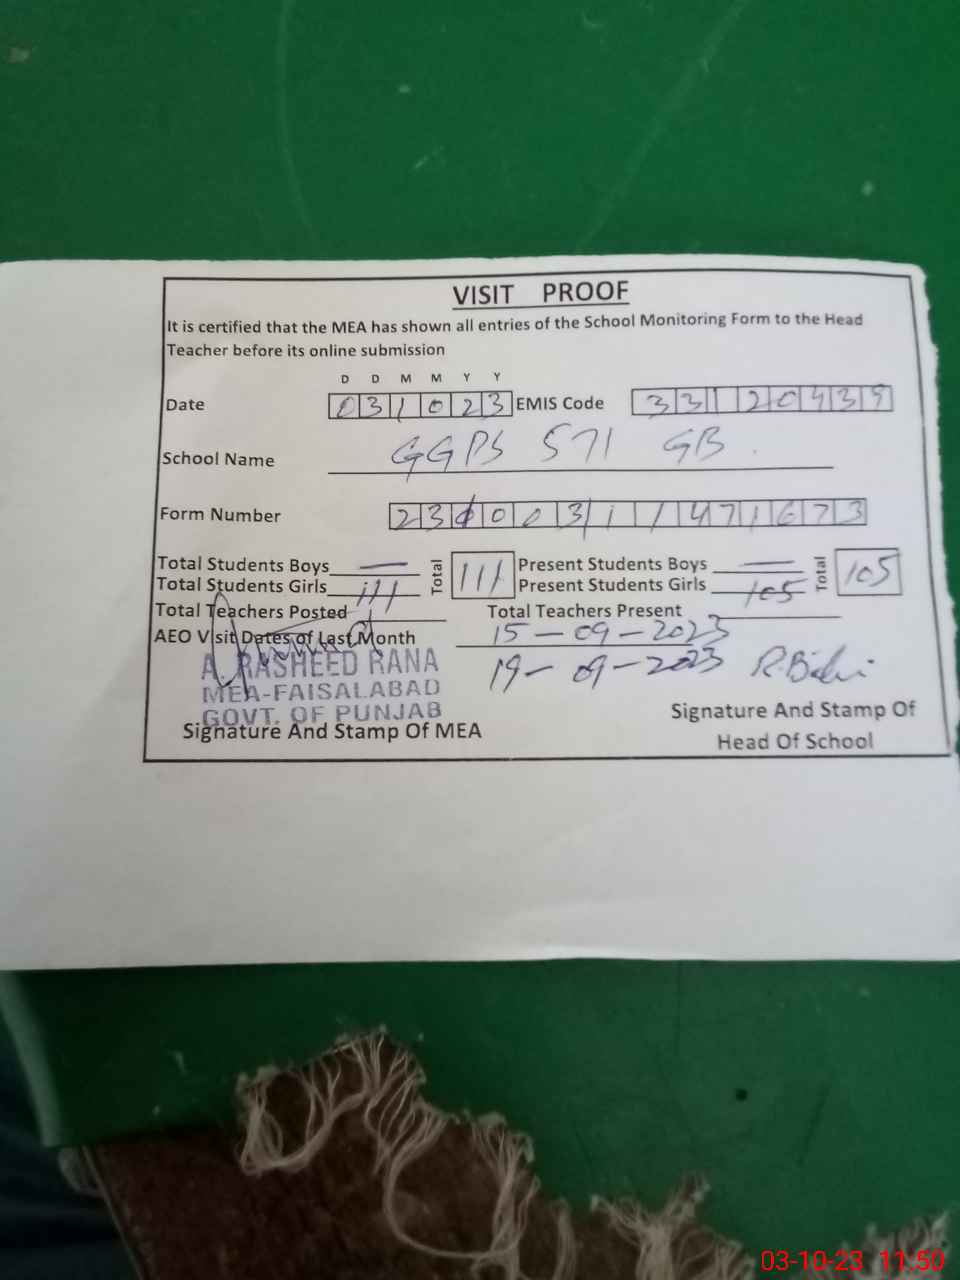 VISIT PROOF
It is certified that the MEA has shown all entries of the School Monitoring Form to the Head
Teacher before its online submission
D D M M Y Y
Date 031023 EMIS Code 33120439
School Name GGPS 571 GB
Form Number
Total Students Boys — Total 111 Present Students Boys — Total 105
Total Students Girls 111 Present Students Girls 105
Total Teachers Posted Total Teachers Present
AEO Visit Dates of Last Month 15-09-2023
19-09-2023
A. RASHEED RANA
MEA-FAISALABAD
GOVT. OF PUNJAB
Signature And Stamp Of MEA
Signature And Stamp Of
Head Of School
03-10-23 11:50